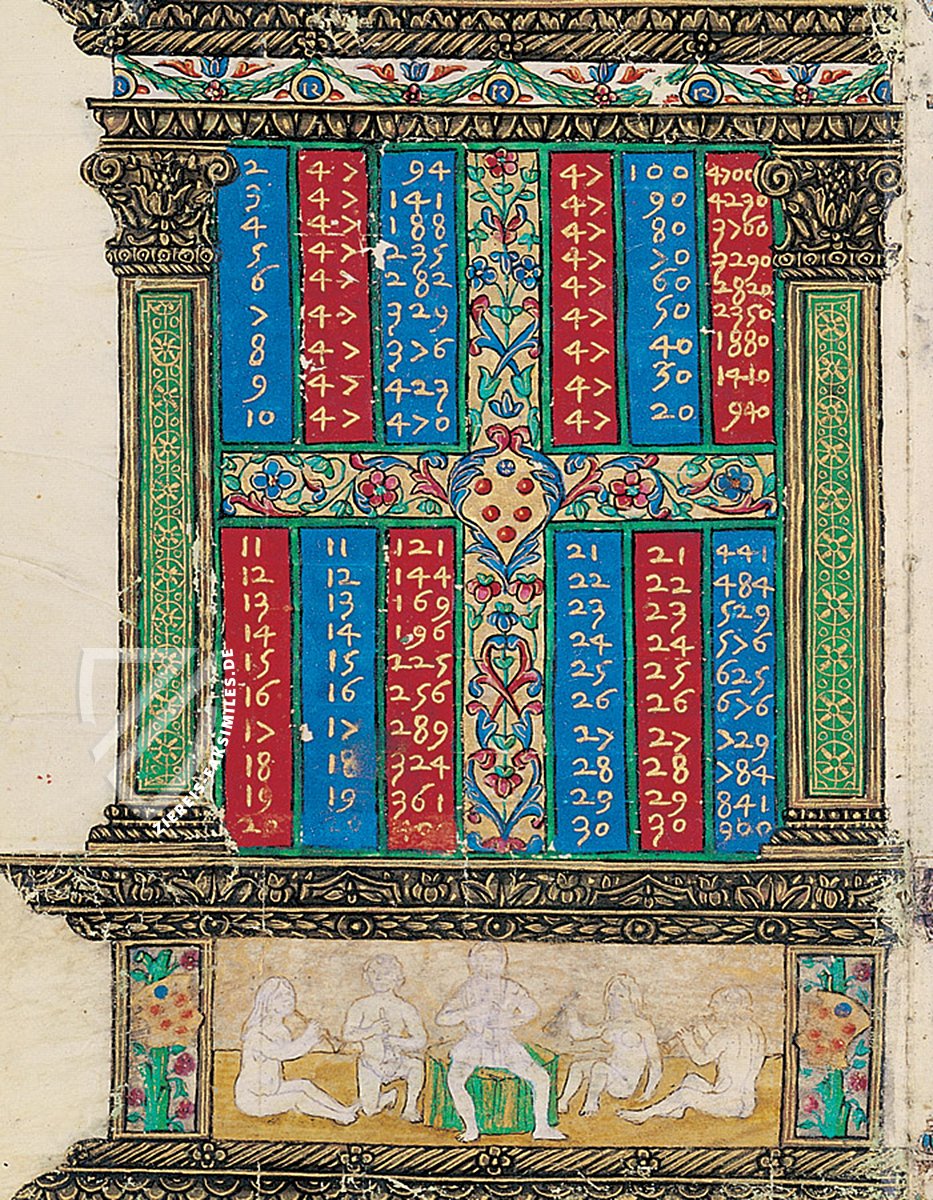 2 47 94 47 100 4700
3 47 141 47 90 4230
4 47 188 47 80 3760
5 47 235 47 70 3290
6 47 282 47 60 2820
7 47 329 47 50 2350
8 47 376 47 40 1880
9 47 423 47 30 1410
10 47 470 47 20 940
11 11 121 21 21 441
12 12 144 22 22 484
13 13 169 23 23 529
14 14 196 24 24 576
15 15 225 25 25 625
16 16 256 26 26 676
17 17 289 27 27 729
18 18 324 28 28 784
19 19 361 29 29 841
20 20 30 30 900
ZIEREIS FAKSIMILES.DE